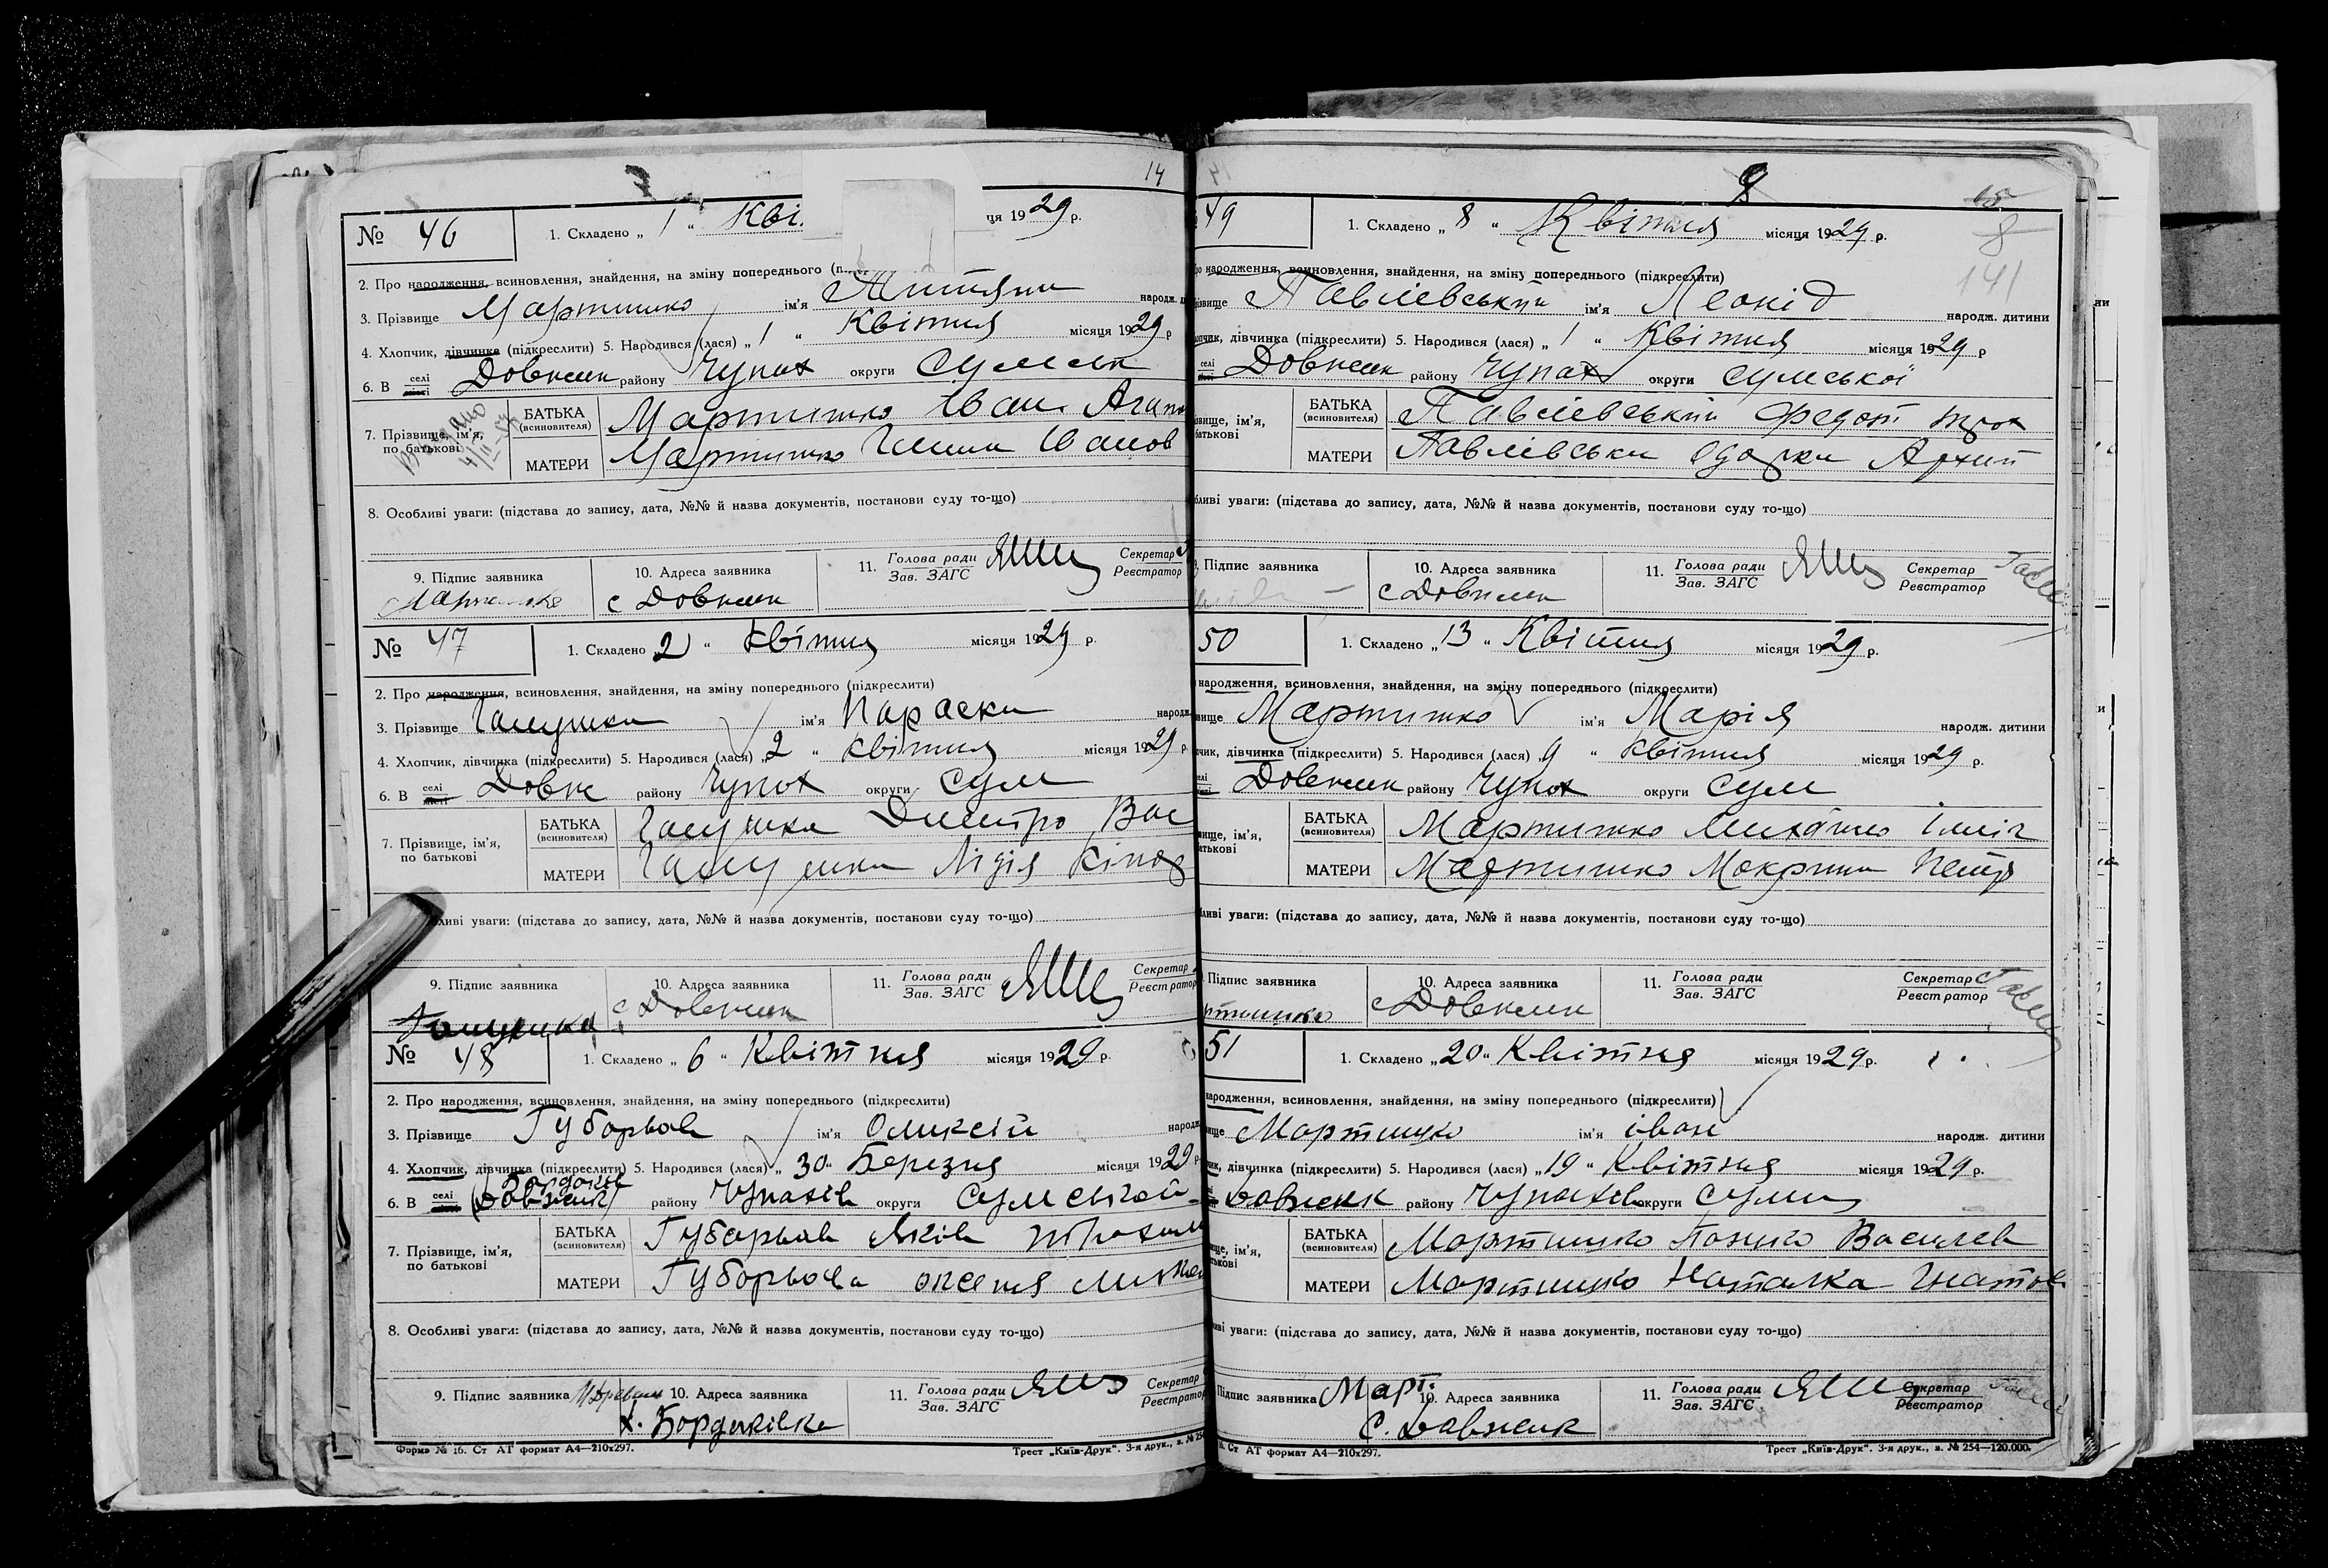 14
№ 46
1. Складено „ 1 “ Кві. ця 1929 р.
2. Про народження, всиновлення, знайдення, на зміну попереднього
3. Прізвище Мартишко ім'я народж.
4. Хлопчик, дівчинка (підкреслити) 5. Народився (лася) „ 1 “ Квітня місяця 1929 р
6. В селі місті Довжик району Чупах округи Сумськ
7. Прізвище, ім'я, по батькові
БАТЬКА (всиновителя) Мартишко Іван
МАТЕРИ Мартишко Іванов
8. Особливі уваги: (підстава до запису, дата, №№ й назва документів, постанови суду то-що)
9. Підпис заявника
10. Адреса заявника
с Довжик
11. Голова ради Зав. ЗАГС
Секретар Реєстратор
№ 47
1. Складено „ 2 “ Квітня місяця 1929 р.
2. Про народження, всиновлення, знайдення, на зміну попереднього (підкреслити)
3. Прізвище Галушка ім'я Параска народж
4. Хлопчик, дівчинка (підкреслити) 5. Народився (лася) „ 2 “ квітня місяця 1929 р
6. В селі місті Довж району Чупах округи Сум
7. Прізвище, ім'я, по батькові
БАТЬКА (всиновителя) Галушка Дмитро Вас
МАТЕРИ Галушка Лідія
ливі уваги: (підстава до запису, дата, №№ й назва документів, постанови суду то-що)
9. Підпис заявника
Галушка
10. Адреса заявника
с Довжик
11. Голова ради Зав. ЗАГС
Секретар Реєстратор
№ 48
1. Складено „ 6 “ Квітня місяця 1929 р.
2. Про народження, всиновлення, знайдення, на зміну попереднього (підкреслити)
3. Прізвище Губарьов ім'я Олексій народж
4. Хлопчик, дівчинка (підкреслити) 5. Народився (лася) „ 30 “ Березня місяця 1929 р.
6. В селі місті (Довжик) району Чупахів округи Сумської
7. Прізвище, ім'я, по батькові
БАТЬКА (всиновителя) Губарьов Яків
МАТЕРИ Губарьова
8. Особливі уваги: (підстава до запису, дата, №№ й назва документів, постанови суду то-що)
9. Підпис заявника
10. Адреса заявника
х. Бордаківка
11. Голова ради Зав. ЗАГС
Секретар Реєстратор
Форма № 16. Ст АТ формат А4—210х297.
Трест „Київ-Друк“. 3-я друк., з. № 254
141
49
1. Складено „ 8 “ Квітня місяця 1929 р.
народження, всиновлення, знайдення, на зміну попереднього (підкреслити)
Павлевський ім'я Леонід народж. дитини
дівчинка (підкреслити) 5. Народився (лася) „ 1 “ Квітня місяця 1929 р
Довжик району Чупах округи Сумської
БАТЬКА (всиновителя) Павлевський Федот
МАТЕРИ Павлівська Одарка Архип
уваги: (підстава до запису, дата, №№ й назва документів, постанови суду то-що)
Підпис заявника
10. Адреса заявника
с Довжик
11. Голова ради Зав. ЗАГС
Секретар Реєстратор
50
1. Складено „ 13 “ Квітня місяця 1929 р.
народження, всиновлення, знайдення, на зміну попереднього (підкреслити)
Мартишко ім'я Марія народж. дитини
дівчинка (підкреслити) 5. Народився (лася) „ 9 “ квітня місяця 1929 р.
Довжик району Чупах округи Сум
БАТЬКА (всиновителя) Мартишко Михайло Ілліч
МАТЕРИ Мартишко Мокрина Петр
уваги: (підстава до запису, дата, №№ й назва документів, постанови суду то-що)
Підпис заявника
10. Адреса заявника
с Довжик
11. Голова ради Зав. ЗАГС
Секретар Реєстратор
51
1. Складено „ 20 “ Квітня місяця 1929 р.
народження, всиновлення, знайдення, на зміну попереднього (підкреслити)
Мартишко ім'я іван народж. дитини
дівчинка (підкреслити) 5. Народився (лася) „ 19 “ Квітня місяця 1929 р.
Довжик району Чупахів округи Суми
БАТЬКА (всиновителя) Мартишко Василев
МАТЕРИ Мартишко Наталка Гнатов
уваги: (підстава до запису, дата, №№ й назва документів, постанови суду то-що)
Підпис заявника Март.
10. Адреса заявника
С. Довжик
11. Голова ради Зав. ЗАГС
Секретар Реєстратор
Ст АТ формат А4—210х297.
Трест „Київ-Друк“. 3-я друк., з. № 254—120.000.